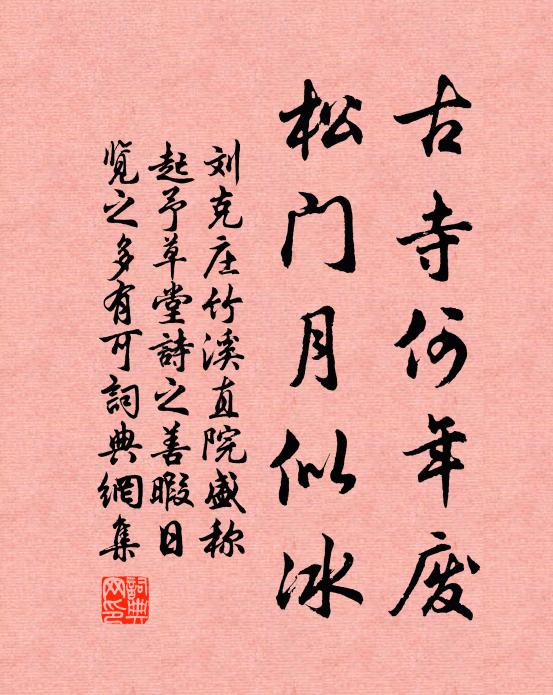 古寺何年废
松门月似冰
刘克庄竹溪直院盛称
起予草堂詩之善暇日
览之多有可詞典網集
詞典
网印